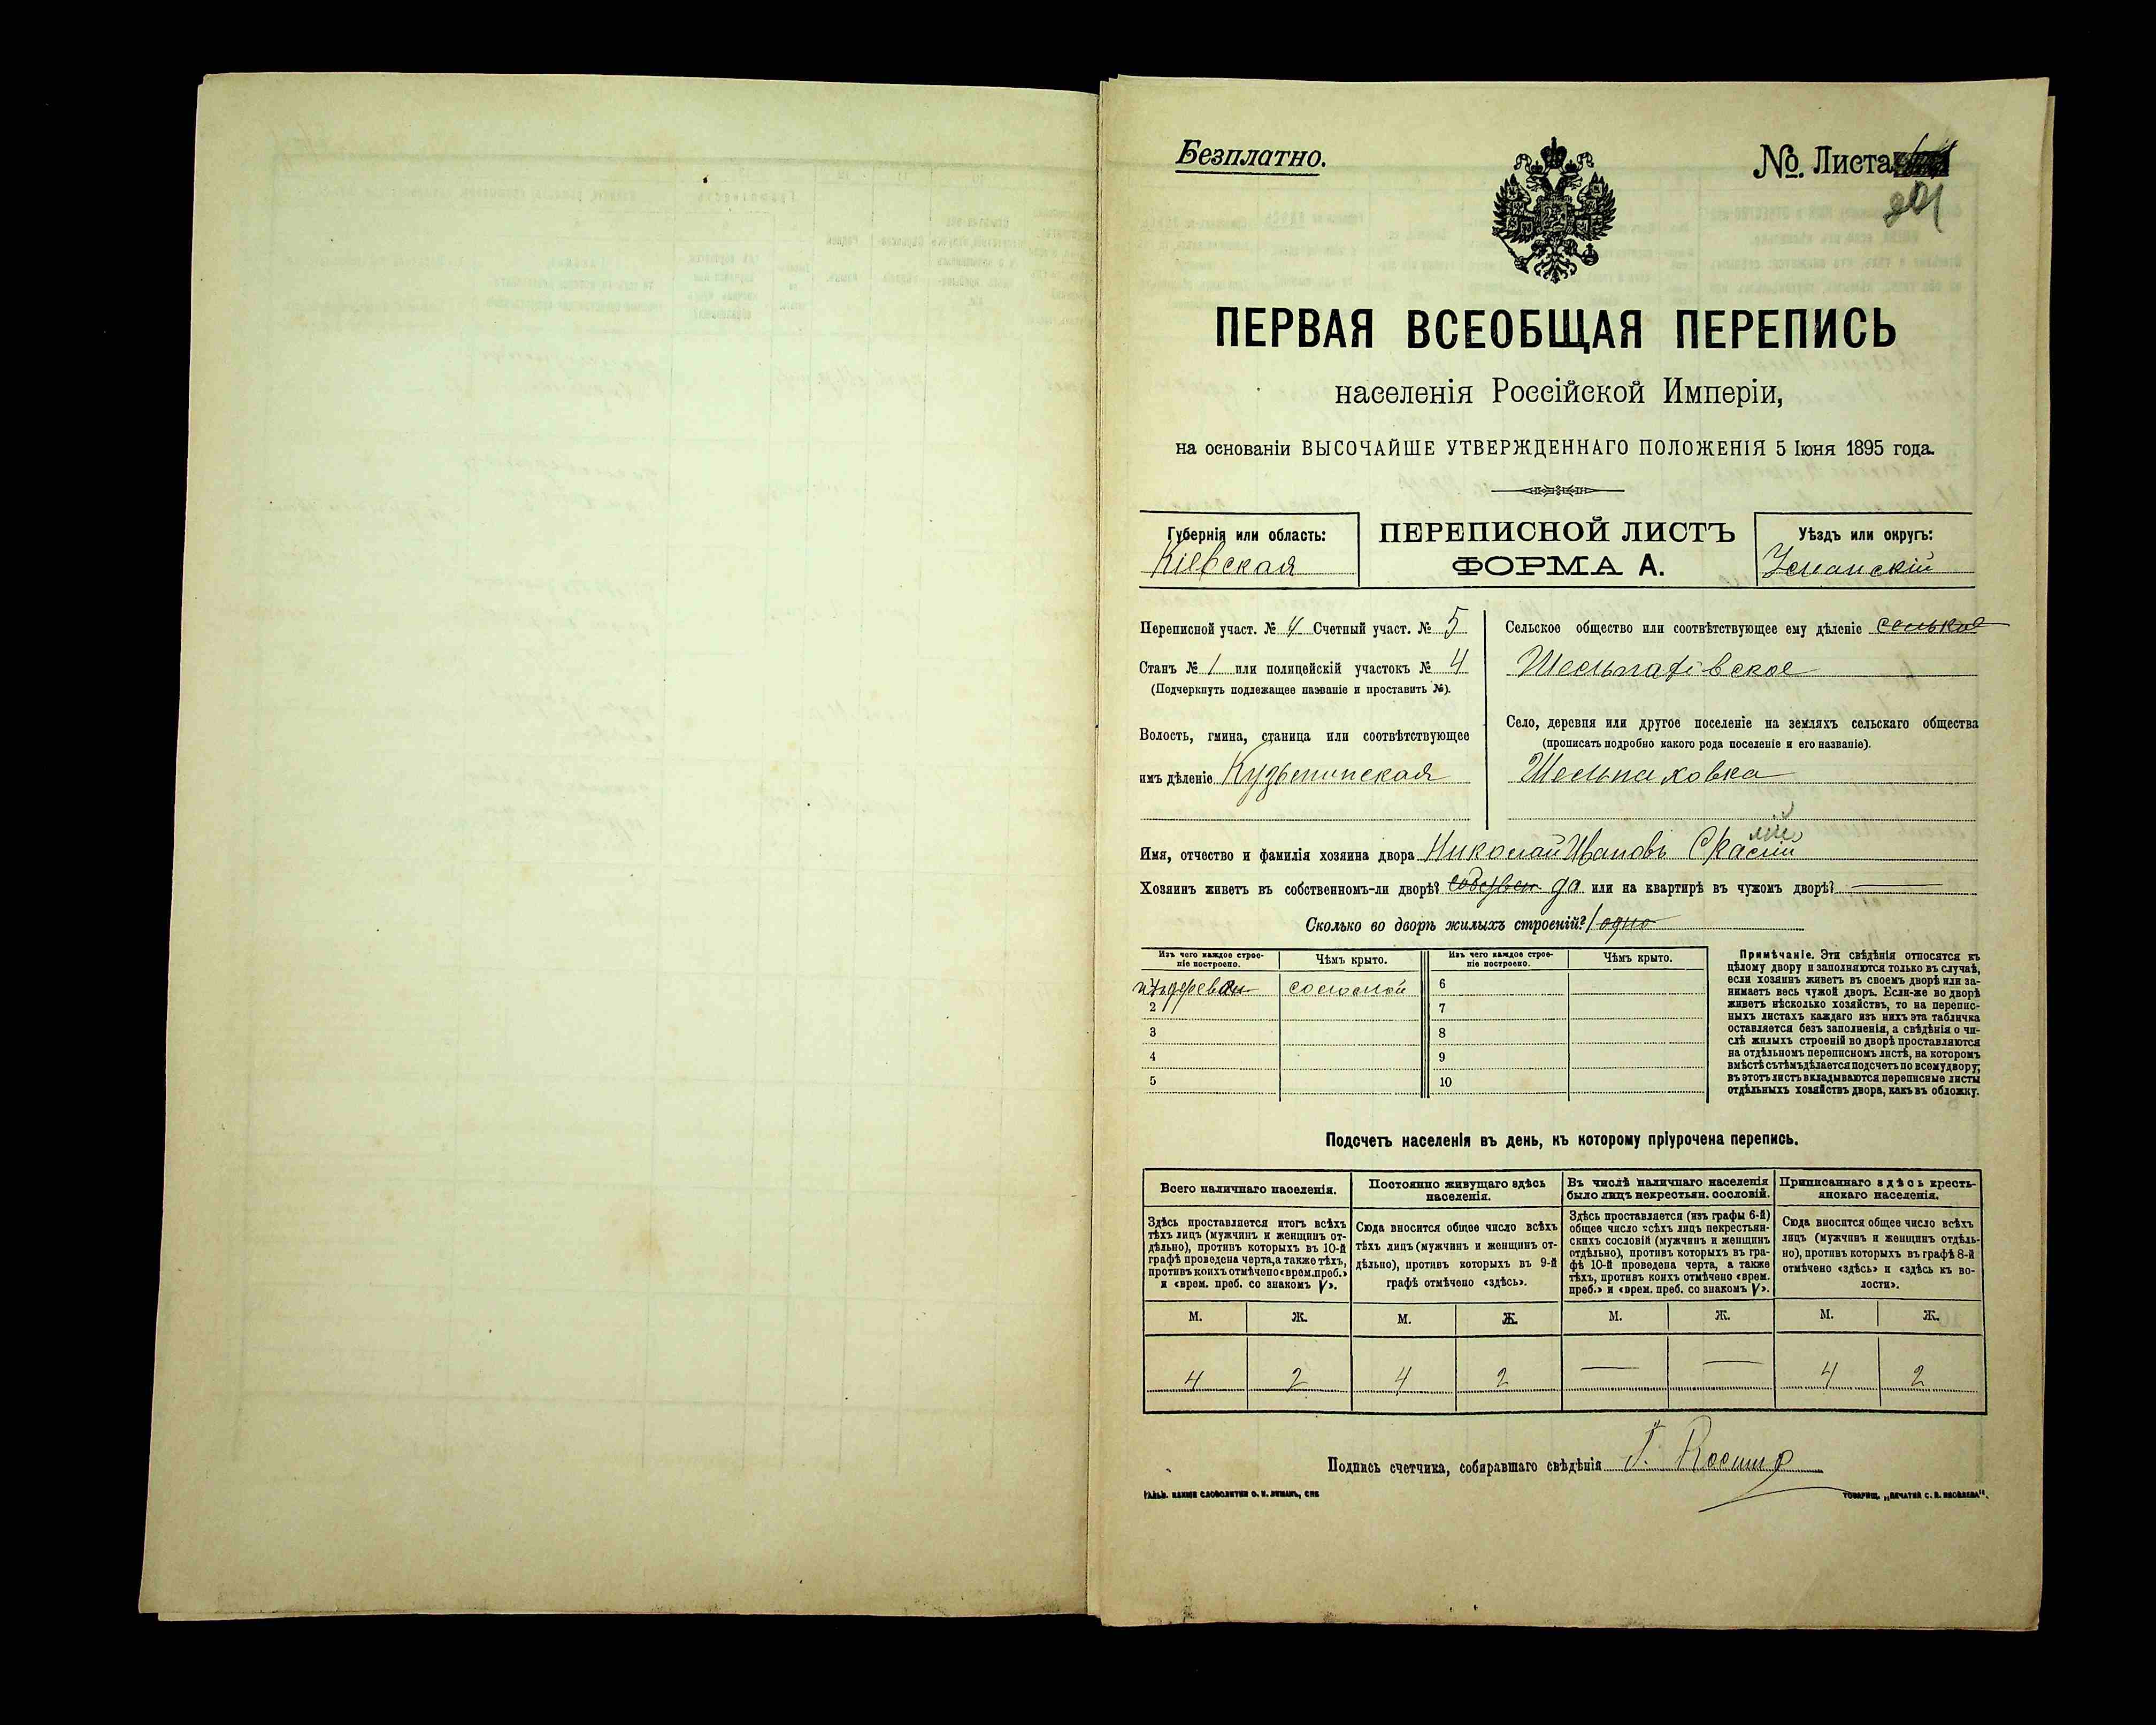 Безплатно.
№. Листа
201
ПЕРВАЯ ВСЕОБЩАЯ ПЕРЕПИСЬ
населенія Россійской Имперіи,
на основаніи ВЫСОЧАЙШЕ УТВЕРЖДЕННАГО ПОЛОЖЕНІЯ 5 Іюня 1895 года.
Губернія или область:
Кіевская
ПЕРЕПИСНОЙ ЛИСТЪ
ФОРМА А.
Уѣздъ или округъ:
Уманскій
Переписной участ. № 4 Счетный участ. № 5
Станъ № 1 или полицейскій участокъ № 4
(Подчеркнуть подлежащее названіе и проставить №).
Волость, гмина, станица или соотвѣтствующее
имъ дѣленіе
Сельское общество или соотвѣтствующее ему дѣленіе
Село, деревня или другое поселеніе на земляхъ сельскаго общества
(прописать подробно какого рода поселеніе и его названіе).
Шельпаховка
Имя, отчество и фамилія хозяина двора Николай Ивановъ
Хозяинъ живетъ въ собственномъ-ли дворѣ? да или на квартирѣ въ чужомъ дворѣ? —
Сколько во дворѣ жилыхъ строеній? 1 одно
Изъ чего каждое строе-
ніе построено.
Чѣмъ крыто.
Изъ чего каждое строе-
ніе построено.
Чѣмъ крыто.
соломой
2
3
4
5
6
7
8
9
10
Примѣчаніе. Эти свѣдѣнія относятся къ
цѣлому двору и заполняются только въ случаѣ,
если хозяинъ живетъ въ своемъ дворѣ или за-
нимаетъ весь чужой дворъ. Если-же во дворѣ
живетъ нѣсколько хозяйствъ, то на перепис-
ныхъ листахъ каждаго изъ нихъ эта табличка
оставляется безъ заполненія, а свѣдѣнія о чи-
слѣ жилыхъ строеній во дворѣ проставляются
на отдѣльномъ переписномъ листѣ, на которомъ
вмѣстѣ съ тѣмъ дѣлается подсчетъ по всему двору;
въ этотъ листъ вкладываются переписные листы
отдѣльныхъ хозяйствъ двора, какъ въ обложку.
Подсчетъ населенія въ день, къ которому пріурочена перепись.
Всего наличнаго населенія.
Здѣсь проставляется итогъ всѣхъ
тѣхъ лицъ (мужчинъ и женщинъ от-
дѣльно), противъ которыхъ въ 10-й
графѣ проведена черта, а также тѣхъ,
противъ коихъ отмѣчено «врем. преб.»
и «врем. преб. со знакомъ V».
Постоянно живущаго здѣсь
населенія.
Сюда вносится общее число всѣхъ
тѣхъ лицъ (мужчинъ и женщинъ от-
дѣльно), противъ которыхъ въ 9-й
графѣ отмѣчено «здѣсь».
Въ числѣ наличнаго населенія
было лицъ некрестьян. сословій.
Здѣсь проставляется (изъ графы 6-й)
общее число всѣхъ лицъ некрестьян-
скихъ сословій (мужчинъ и женщинъ
отдѣльно), противъ которыхъ въ гра-
фѣ 10-й проведена черта, а также
тѣхъ, противъ коихъ отмѣчено «врем.
преб.» и «врем. преб. со знакомъ V».
Приписаннаго здѣсь кресть-
янскаго населенія.
Сюда вносится общее число всѣхъ
лицъ (мужчинъ и женщинъ отдѣль-
но), противъ которыхъ въ графѣ 8-й
отмѣчено «здѣсь» и «здѣсь къ во-
лости».
М. Ж. М. Ж. М. Ж. М. Ж.
4 2 4 2 — — 4 2
Подпись счетчика, собиравшаго свѣдѣнія
СЛОВОЛИТНИ О. И. ЛЕМАНЪ, СПБ
ТОВАРИЩ. „ПЕЧАТНЯ С. П. ЯКОВЛЕВА".